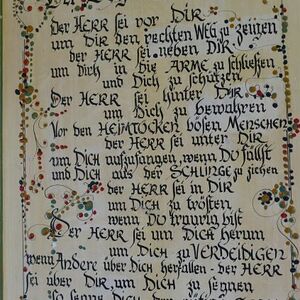 Der HERR sei vor DIR
um DIR den rechten WEG zu zeigen
der HERR sei neben DIR
um Dich in die ARME zu schließen
und Dich zu schützen
Der HERR sei hinter DIR
um Dich zu bewahren
Vor den HEIMTÜCKEN bösen MENSCHEN
der HERR sei unter DIR
um DICH aufzufangen, wenn DU fällst
und DICH aus der SCHLINGE zu ziehen
der HERR sei in DIR
um DICH zu trösten
wenn DU traurig bist
Der HERR sei um DICH herum
um DICH zu VERDEIDIGEN
wenn Andere über DICH herfallen - der HERR
sei über DIR um DICH zu segnen
so segne DICH